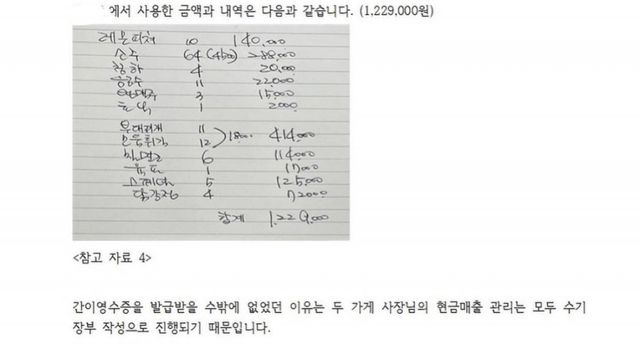 에서 사용한 금액과 내역은 다음과 같습니다. (1,229,000원)
레몬피쳐 10 140,000
소주 64 (4500) 288,000
청하 4 20,000
음료수 11 22,000
3 15,000
1 2000
부대찌개 11
모듬튀김 12 18000 414,000
6 114,000
육포 1 17,000
5 125,000
닭강정 4 72000
합계 1,229,000
<참고 자료 4>
간이영수증을 발급받을 수밖에 없었던 이유는 두 가게 사장님의 현금매출 관리는 모두 수기
장부 작성으로 진행되기 때문입니다.